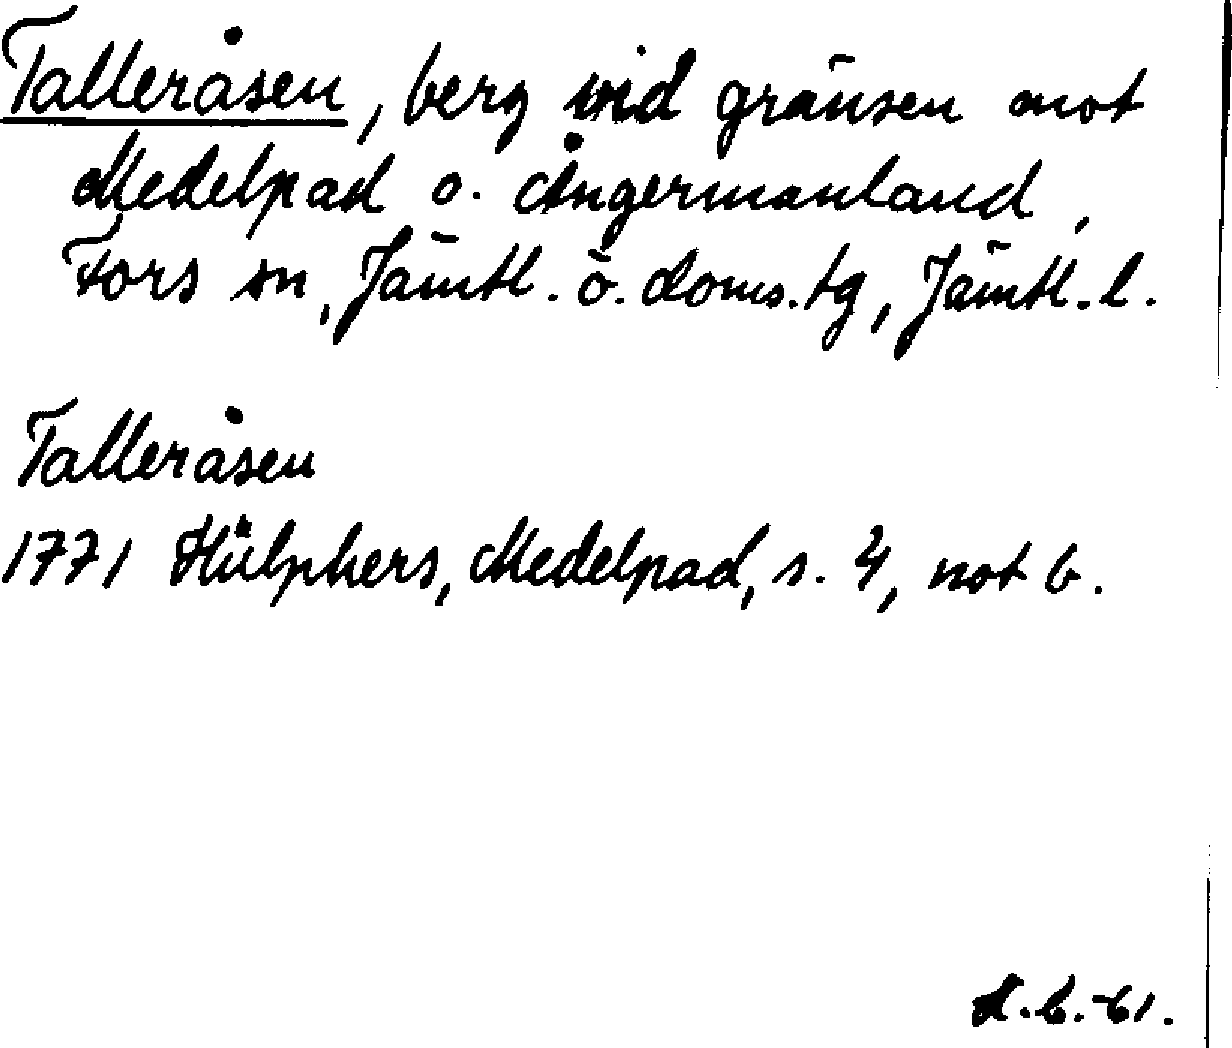 Talleråsen, berg vid gränsen mot
Medelpad o. Ångermanland,
Fors sn, Jämtl. ö. doms. tg, Jämtl. l.
Talleråsen
1771 Hülphers, Medelpad, s. 4, not b.